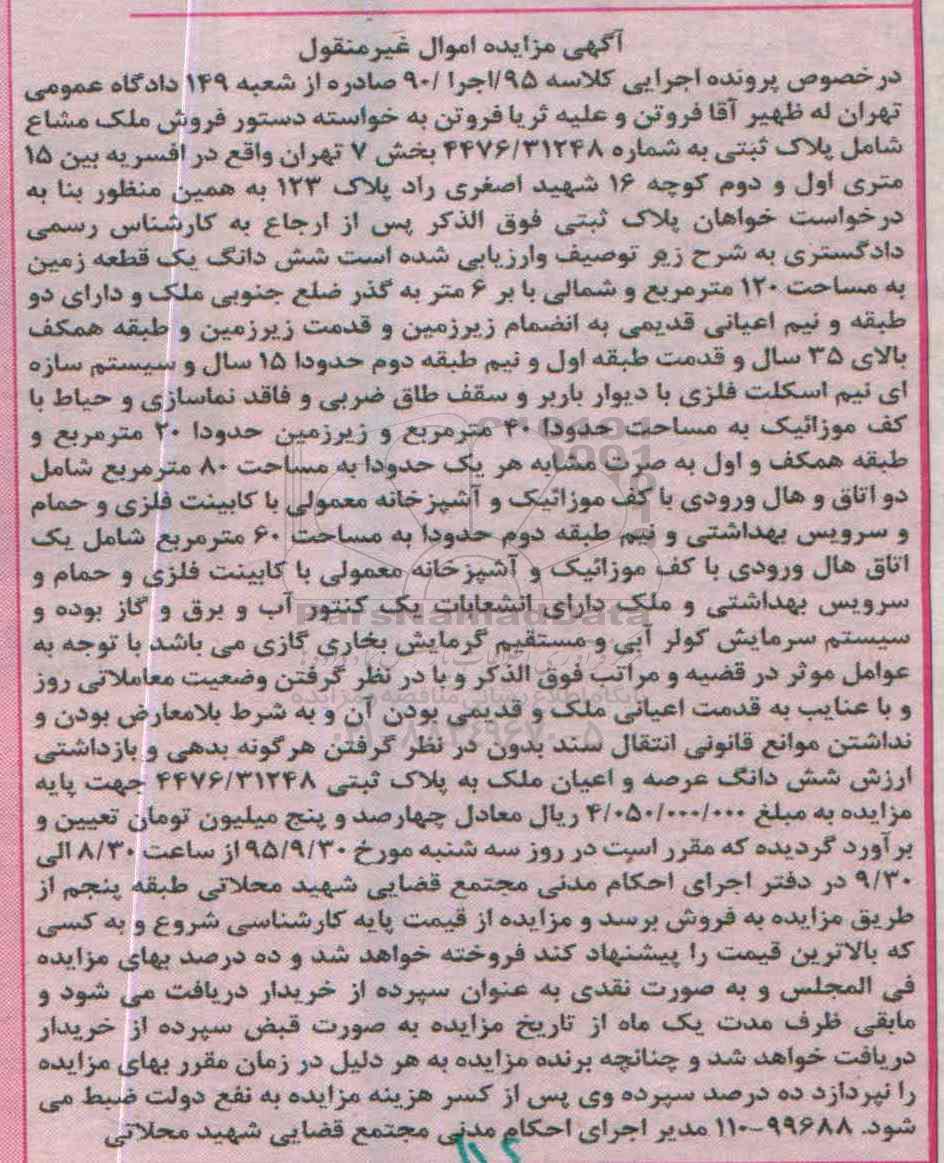 آگهی مزایده اموال غیرمنقول
درخصوص پرونده اجرایی کلاسه ۹۵/اجرا /۹۰ صادره از شعبه ۱۴۹ دادگاه عمومی
تهران له ظهیر آقا فروتن و علیه ثریا فروتن به خواسته دستور فروش ملک مشاع
شامل پلاک ثبتی به شماره ۴۴۷۶/۳۱۲۴۸ بخش ۷ تهران واقع در افسریه بین ۱۵
متری اول و دوم کوچه ۱۶ شهید اصغری راد پلاک ۱۲۳ به همین منظور بنا به
درخواست خواهان پلاک ثبتی فوق الذکر پس از ارجاع به کارشناس رسمی
دادگستری به شرح زیر توصیف وارزیابی شده است شش دانگ یک قطعه زمین
به مساحت ۱۲۰ مترمربع و شمالی با بر ۶ متر به گذر ضلع جنوبی ملک و دارای دو
طبقه و نیم اعیانی قدیمی به انضمام زیرزمین و قدمت زیرزمین و طبقه همکف
بالای ۳۵ سال و قدمت طبقه اول و نیم طبقه دوم حدودا ۱۵ سال و سیستم سازه
ای نیم اسکلت فلزی با دیوار باربر و سقف طاق ضربی و فاقد نماسازی و حیاط با
کف موزائیک به مساحت حدودا ۴۰ مترمربع و زیرزمین حدودا ۲۰ مترمربع و
طبقه همکف و اول به صرت مشابه هر یک حدودا به مساحت ۸۰ مترمربع شامل
دو اتاق و هال ورودی با کف موزائیک و آشپزخانه معمولی با کابینت فلزی و حمام
و سرویس بهداشتی و نیم طبقه دوم حدودا به مساحت ۶۰ مترمربع شامل یک
اتاق هال ورودی با کف موزائیک و آشپزخانه معمولی با کابینت فلزی و حمام و
سرویس بهداشتی و ملک دارای انشعابات یک کنتور آب و برق و گاز بوده و
ParsNamadData
سیستم سرمایش کولر آبی و مستقیم گرمایش بخاری گازی می باشد با توجه به
عوامل موثر در قضیه و مراتب فوق الذکر و با در نظر گرفتن وضعیت معاملاتی روز
پایگاه اطلاع رسانی مناقصه و مزایده
و با عنایب به قدمت اعیانی ملک و قدیمی بودن آن و به شرط بلامعارض بودن و
نداشتن موانع قانونی انتقال سند بدون در نظر گرفتن هرگونه بدهی و بازداشتی
ارزش شش دانگ عرصه و اعیان ملک به پلاک ثبتی ۴۴۷۶/۳۱۲۴۸ جهت پایه
مزایده به مبلغ ۴/۰۵۰/۰۰۰/۰۰۰ ریال معادل چهارصد و پنج میلیون تومان تعیین و
برآورد گردیده که مقرر است در روز سه شنبه مورخ ۹۵/۹/۳۰ از ساعت ۸/۳۰ الی
۹/۳۰ در دفتر اجرای احکام مدنی مجتمع قضایی شهید محلاتی طبقه پنجم از
طریق مزایده به فروش برسد و مزایده از قیمت پایه کارشناسی شروع و به کسی
که بالاترین قیمت را پیشنهاد کند فروخته خواهد شد و ده درصد بهای مزایده
فی المجلس و به صورت نقدی به عنوان سپرده از خریدار دریافت می شود و
مابقی ظرف مدت یک ماه از تاریخ مزایده به صورت قبض سپرده از خریدار
دریافت خواهد شد و چنانچه برنده مزایده به هر دلیل در زمان مقرر بهای مزایده
را نپردازد ده درصد سپرده وی پس از کسر هزینه مزایده به نفع دولت ضبط می
شود. ۹۹۶۸۸-۱۱۰ مدیر اجرای احکام مدنی مجتمع قضایی شهید محلاتی